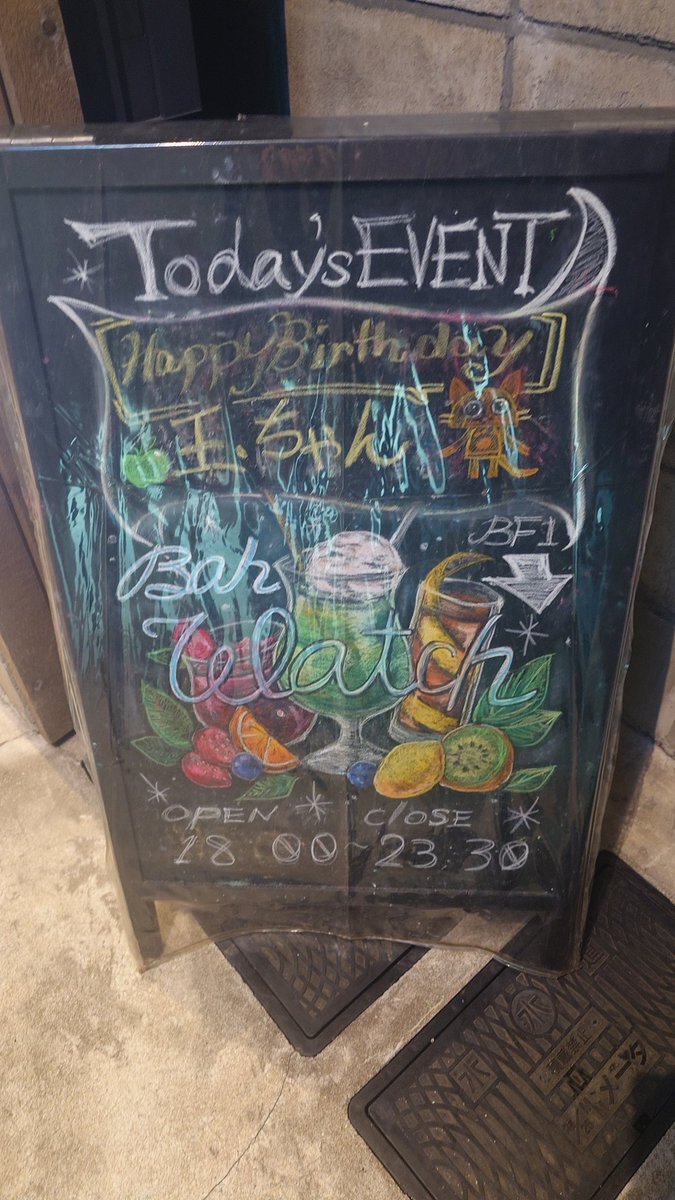 Today's EVENT
Happy Birthday
王ちゃん
BF1
Bar
Watch
OPEN CLOSE
18 00~23 30